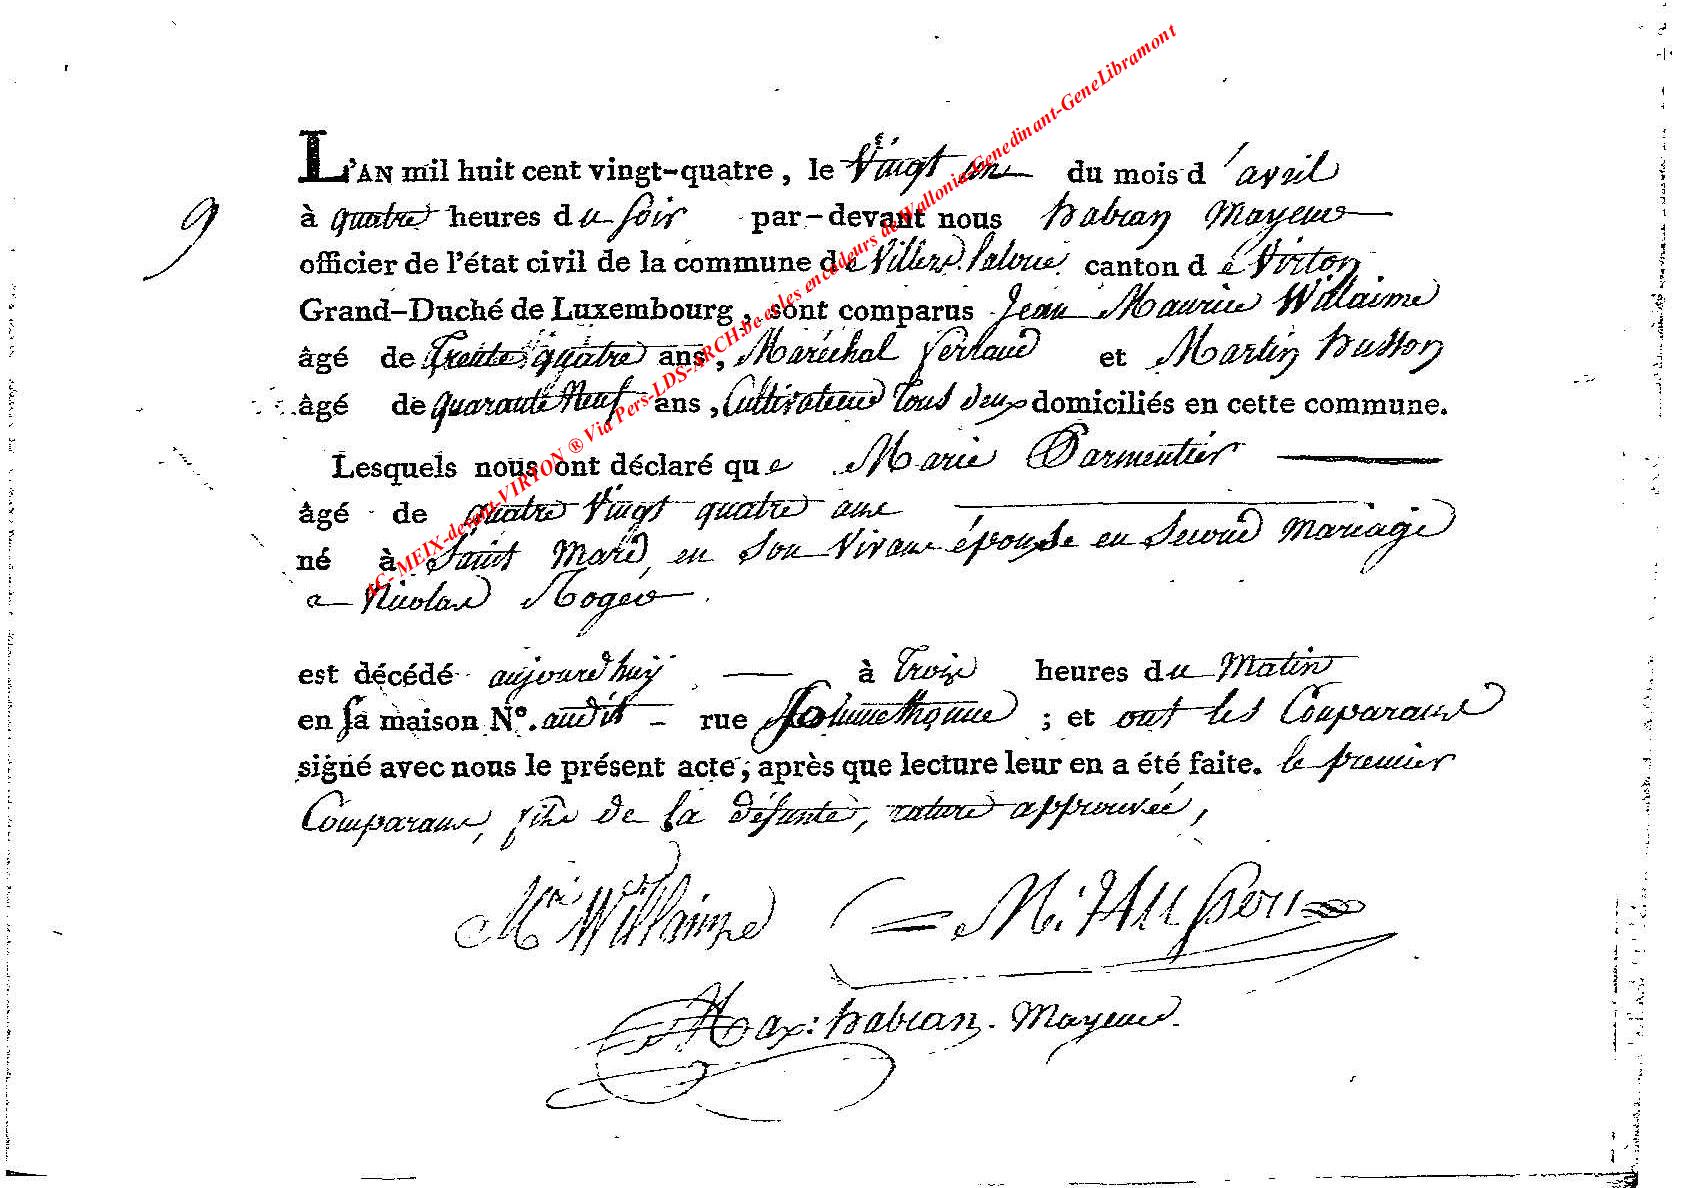 AC- MEIX-devant-VIRTON ® Via Pers-LDS-ARCH.be et les encodeurs de Wallonia-Genedinant-GeneLibramont
9
L'AN mil huit cent vingt-quatre, le Vingt un du mois d'avril
à quatre heures du soir par-devant nous habran Mayeur
officier de l'état civil de la commune de Villers canton de Virton
Grand-Duché de Luxembourg, sont comparus Jean Maurice Willaime
âgé de Trente quatre ans, Maréchal ferrand et Martin husson
âgé de quarante Neuf ans, Cultivateur Tous deux domiciliés en cette commune.
Lesquels nous ont déclaré que Marie Parmentier
âgé de quatre Vingt quatre ans
né à Saint Mard, en son Vivant épouse en Second Mariage
a Nicolas Roger
est décédé aujourdhuy à trois heures du Matin
en sa maison N°. audit rue ; et ont les Comparans
signé avec nous le présent acte, après que lecture leur en a été faite. le premier
Comparant, fils de la défunte, rature approuvée,
Mce Willaime M. Husson
Max: habran. Mayeur.